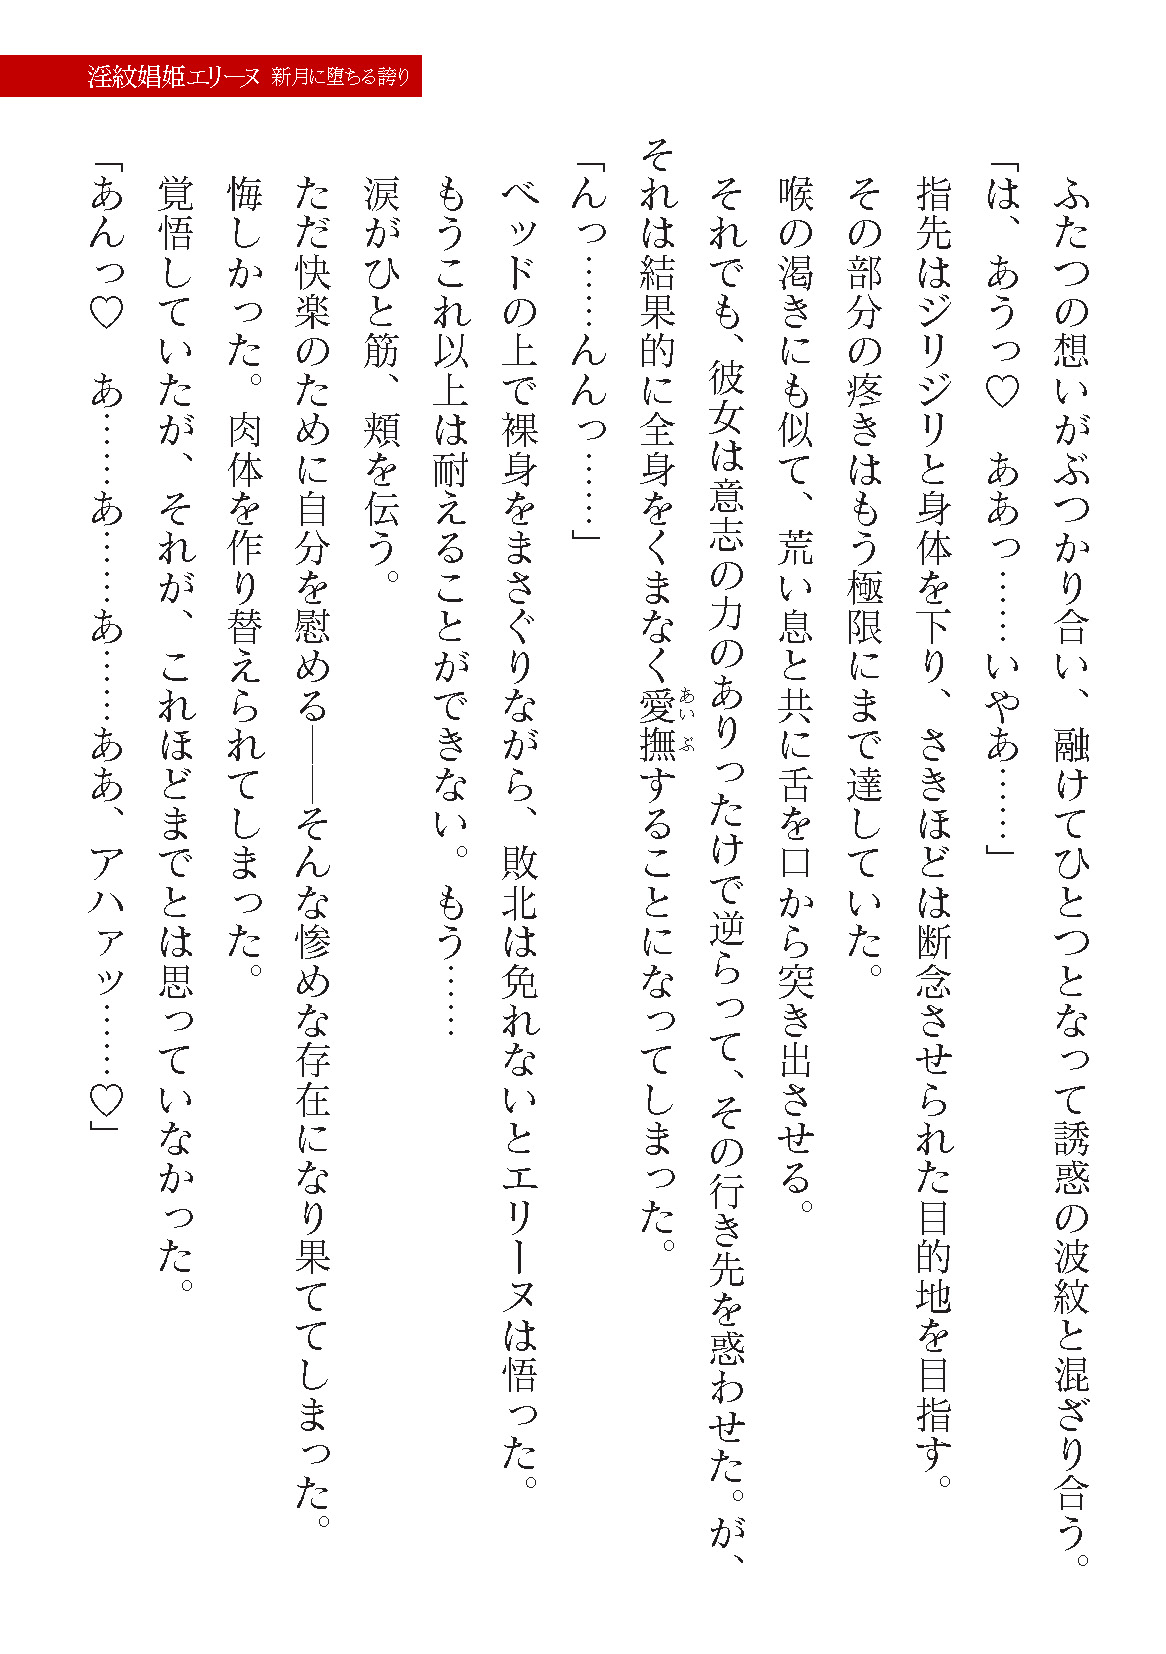 淫紋娼姫エリーヌ 新月に堕ちる誇り
ふたつの想いがぶつかり合い、融けてひとつとなって誘惑の波紋と混ざり合う。
「は、あうっ♡　ああっ……いやあ……」
指先はジリジリと身体を下り、さきほどは断念させられた目的地を目指す。
その部分の疼きはもう極限にまで達していた。
喉の渇きにも似て、荒い息と共に舌を口から突き出させる。
それでも、彼女は意志の力のありったけで逆らって、その行き先を惑わせた。が、
それは結果的に全身をくまなく愛撫することになってしまった。
あいぶ
「んっ……んんっ……」
ベッドの上で裸身をまさぐりながら、敗北は免れないとエリーヌは悟った。
もうこれ以上は耐えることができない。もう……
涙がひと筋、頬を伝う。
ただ快楽のために自分を慰める――そんな惨めな存在になり果ててしまった。
悔しかった。肉体を作り替えられてしまった。
覚悟していたが、それが、これほどまでとは思っていなかった。
「あんっ♡　あ……あ……あ……ああ、アハァッ……♡」